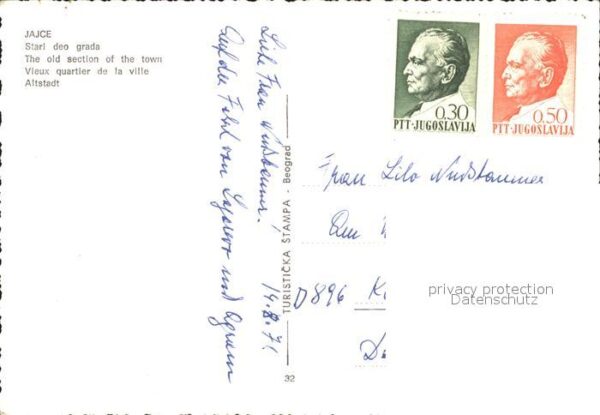 JAJCE
Stari deo grada
The old section of the town
Vieux quartier de la ville
Altstadt
0.30
PTT-JUGOSLAVIJA
0.50
PTT-JUGOSLAVIJA
Liebe Frau Nußbaumer!
14.8.71
Auf der Fahrt von Sarajevo und Agram
TURISTIČKA ŠTAMPA - Beograd
32
Frau Lilo Nußbaumer
D896 K
privacy protection
Datenschutz